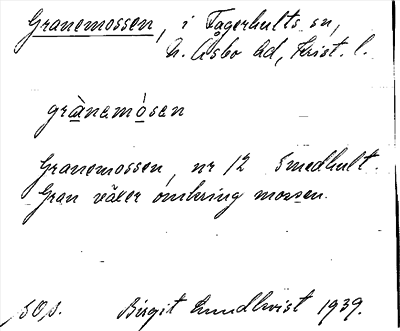 Granemossen, i Fagerhults sn,
N. Åsbo hd, Krist. l.
grànemòsen
Granemossen, nr 12 Smedhult.
Gran växer omkring mossen.
SOs. Birgit Lundkvist 1939.